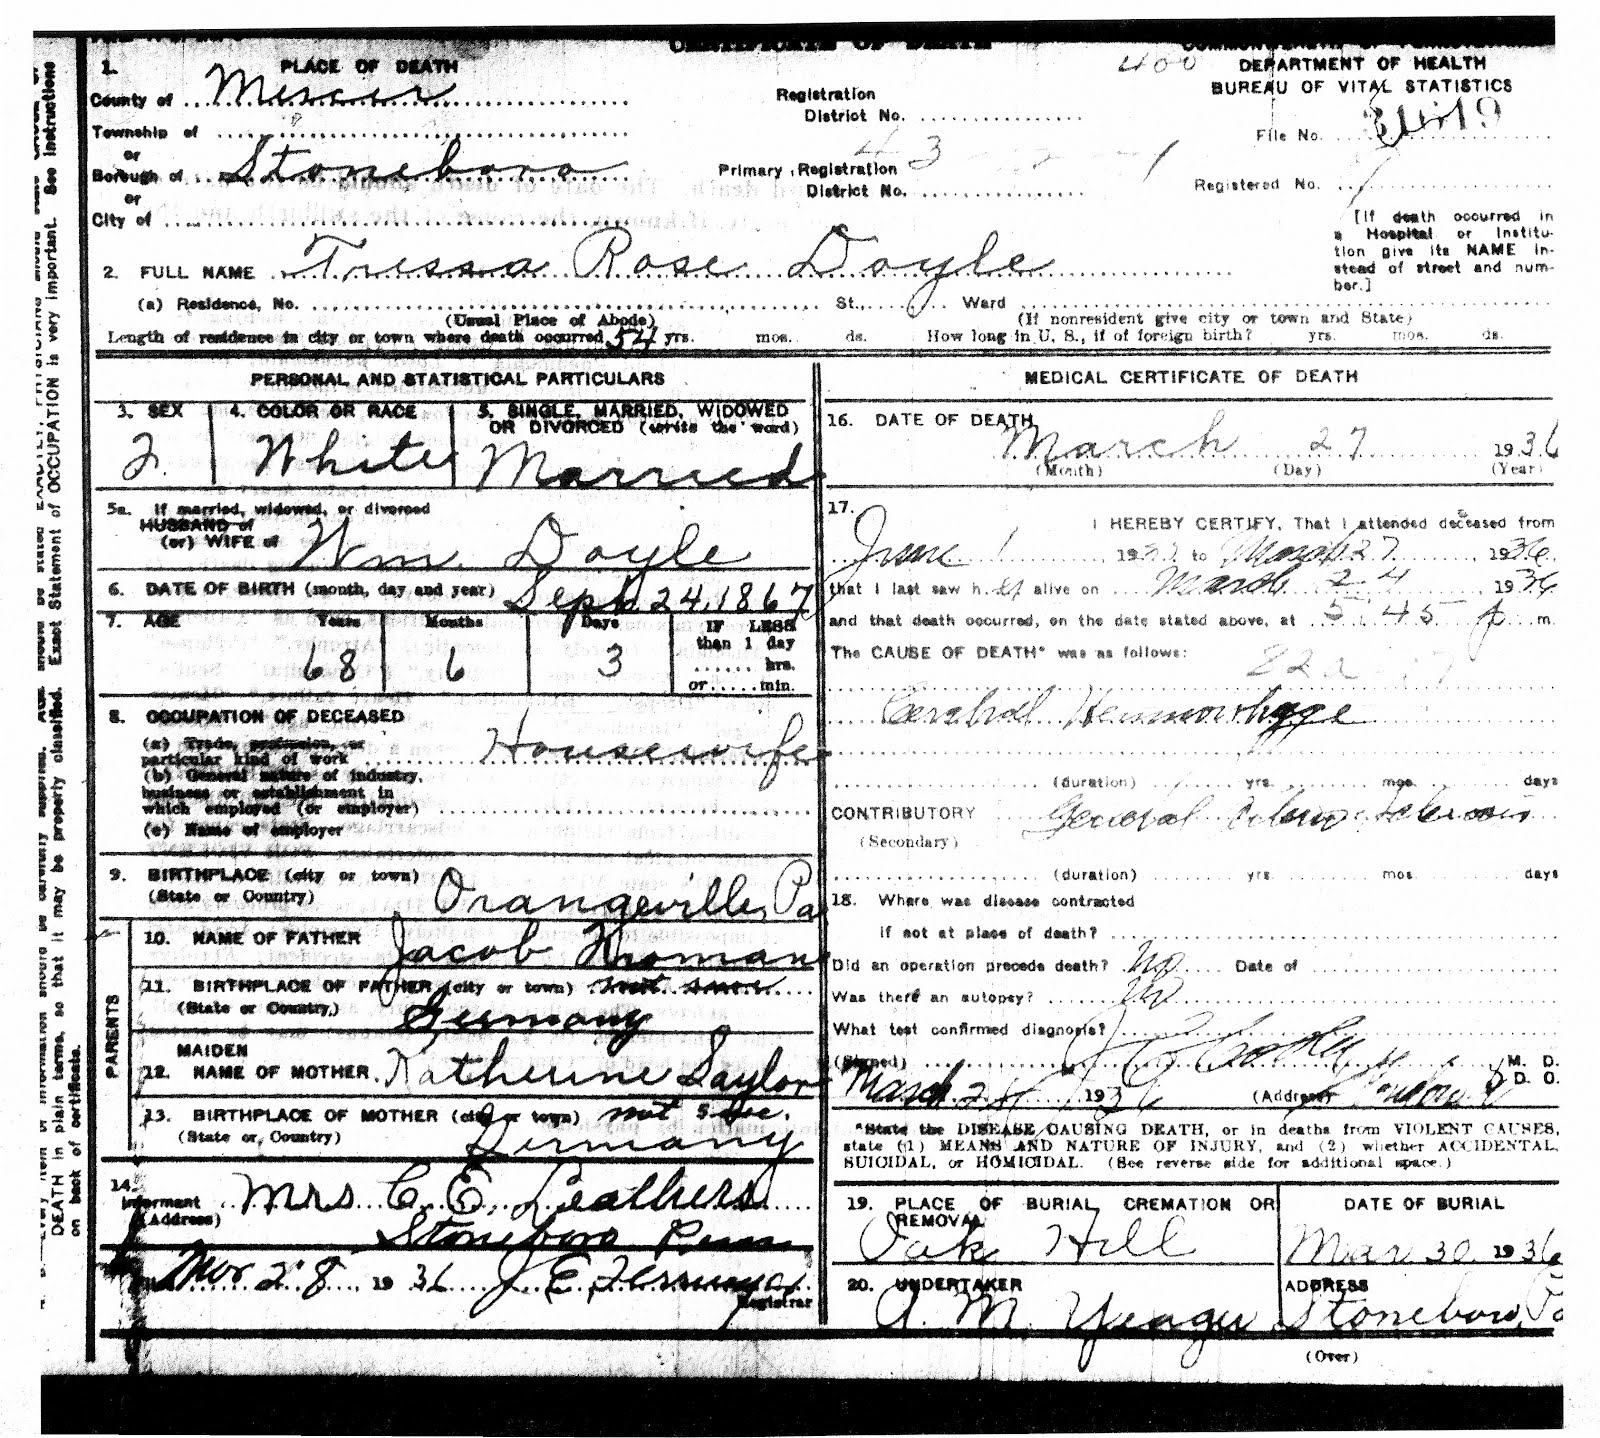 CERTIFICATE OF DEATH
COMMONWEALTH OF
400 DEPARTMENT OF HEALTH
BUREAU OF VITAL STATISTICS
File No.
Registered No.
1. PLACE OF DEATH
County of Mercer
Township of
or
Borough of Stoneboro
or
City of
Registration
District No.
43
Primary Registration
District No.
[If death occurred in
a Hospital or Institu-
tion give its NAME in-
stead of street and num-
ber.]
2. FULL NAME Tressa Rose Doyle
(a) Residence, No. St., Ward
(Usual Place of Abode) (If nonresident give city or town and State)
Length of residence in city or town where death occurred 54 yrs. mos. ds. How long in U. S., if of foreign birth? yrs. mos. ds.
PERSONAL AND STATISTICAL PARTICULARS
3. SEX 4. COLOR OR RACE 5. SINGLE, MARRIED, WIDOWED
OR DIVORCED (write the word)
F. White Married
5a. If married, widowed, or divorced
HUSBAND of
(or) WIFE of Wm. Doyle
6. DATE OF BIRTH (month, day and year) Sept 24, 1867
7. AGE Years Months Days IF LESS
than 1 day
68 6 3 hrs.
or min.
8. OCCUPATION OF DECEASED
(a) Trade, profession, or
particular kind of work Housewife
(b) General nature of industry,
business or establishment in
which employed (or employer)
(c) Name of employer
9. BIRTHPLACE (city or town)
(State or Country) Orangeville, Pa
PARENTS
10. NAME OF FATHER Jacob
11. BIRTHPLACE OF FATHER (city or town) not
(State or Country) Germany
MAIDEN
12. NAME OF MOTHER Katherine Saylor
13. BIRTHPLACE OF MOTHER (city or town) not
(State or Country) Germany
14.
Informant Mrs C. E. Leathers
(Address) Stoneboro Penn
Mar 28 1936 J. E.
Registrar
MEDICAL CERTIFICATE OF DEATH
16. DATE OF DEATH
March 27 1936
(Month) (Day) (Year)
17.
I HEREBY CERTIFY, That I attended deceased from
June 1 to March 27 1936
that I last saw her alive on March 24 1936
and that death occurred, on the date stated above, at 5:45 p m.
The CAUSE OF DEATH* was as follows:
82a
Cerebral Hemmorhage
(duration) yrs. mos. days
CONTRIBUTORY General
(Secondary)
(duration) yrs. mos. days
18. Where was disease contracted
if not at place of death?
Did an operation precede death? No Date of
Was there an autopsy? No
What test confirmed diagnosis?
(Signed) M. D.
D. O.
March 1936 (Address)
*State the DISEASE CAUSING DEATH, or in deaths from VIOLENT CAUSES,
state (1) MEANS AND NATURE OF INJURY, and (2) whether ACCIDENTAL,
SUICIDAL, or HOMICIDAL. (See reverse side for additional space.)
19. PLACE OF BURIAL CREMATION OR
REMOVAL
Oak Hill
DATE OF BURIAL
Mar 30 1936
20. UNDERTAKER ADDRESS
A. M. Yeager Stoneboro, Pa
(Over)